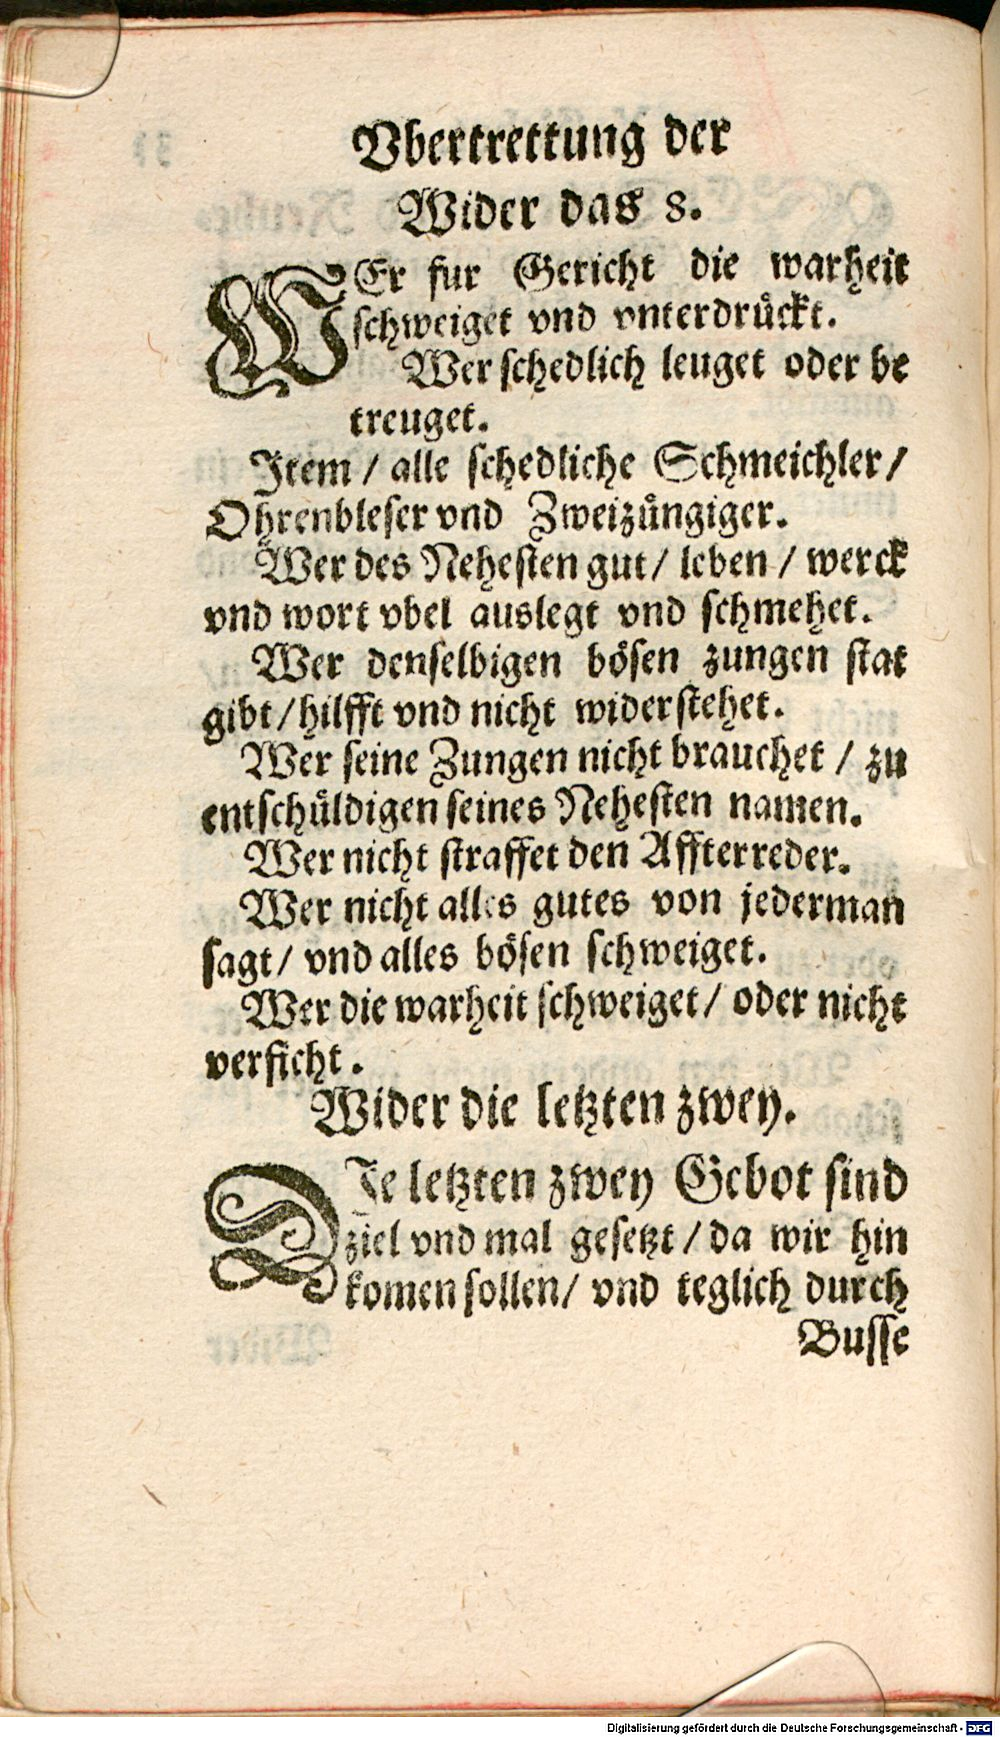 Vbertrettung der
Wider das 8.
WEr fur Gericht die warheit
schweiget vnd vnterdrückt.
Wer schedlich leuget oder be
treuget.
Item / alle schedliche Schmeichler /
Ohrenbleser vnd Zweizüngiger.
Wer des Nehesten gut / leben / werck
vnd wort vbel auslegt vnd schmehet.
Wer denselbigen bösen zungen stat
gibt / hilfft vnd nicht widerstehet.
Wer seine Zungen nicht brauchet / zu
entschüldigen seines Nehesten namen.
Wer nicht straffet den Affterreder.
Wer nicht alles gutes von jederman
sagt / vnd alles bösen schweiget.
Wer die warheit schweiget / oder nicht
verficht.
Wider die letzten zwey.
DIe letzten zwey Gebot sind
ziel vnd mal gesetzt / da wir hin
komen sollen / vnd teglich durch
Busse
Digitalisierung gefördert durch die Deutsche Forschungsgemeinschaft - DFG